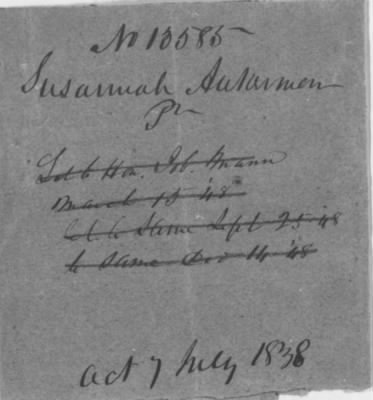 No 13585
Susannah Aukarmon
Pr
Let to Hon. Job. Mann
March 15 '48
Let. to Same Sept 25 '48
to Same Dec 14 '48
Act 7 July 1838